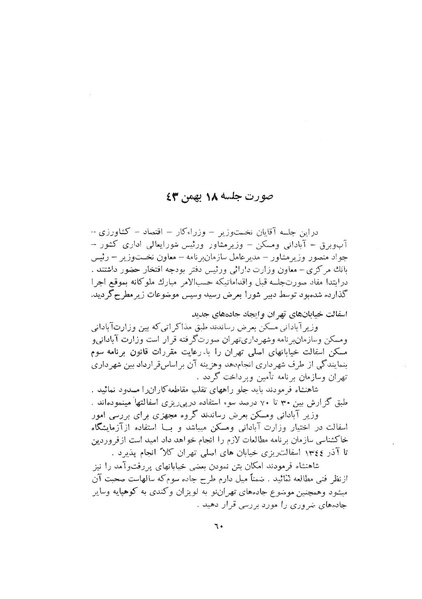 صورت جلسه ۱۸ بهمن ۴۳
دراین جلسه آقایان نخست‌وزیر – وزراءکار – اقتصاد – کشاورزی –
آب‌وبرق – آبادانی ومسکن – وزیرمشاور ورئیس شورایعالی اداری کشور –
جواد منصور وزیرمشاور – مدیرعامل سازمان‌برنامه – معاون نخست‌وزیر – رئیس
بانک مرکزی – معاون وزارت دارائی ورئیس دفتر بودجه افتخار حضور داشتند .
درابتدا مفاد صورت‌جلسه قبل واقداماتیکه حسب‌الامر مبارک ملوکانه بموقع اجرا
گذارده شده‌بود توسط دبیر شورا بعرض رسید وسپس موضوعات زیرمطرح‌گردید.
اسفالت خیابان‌های تهران وایجاد جاده‌های جدید
وزیرآبادانی ومسکن بعرض رساندند طبق مذاکراتی که بین وزارت‌آبادانی
ومسکن وسازمان‌برنامه وشهرداری‌تهران صورت‌گرفته قرار است وزارت آبادانی‌و
مسکن اسفالت خیابانهای اصلی تهران را با رعایت مقررات قانون برنامه سوم
بنمایندگی از طرف شهرداری انجام‌دهد وهزینه آن براساس‌قرارداد بین شهرداری
تهران وسازمان برنامه تأمین وپرداخت گردد .
شاهنشاه فرمودند باید جلو راههای تقلب مقاطعه‌کاران‌را مسدود نمائید .
طبق گزارش بین ۳۰ تا ۷۰ درصد سوء استفاده درپی‌ریزی اسفالتها مینموده‌اند .
وزیر آبادانی ومسکن بعرض رساندند گروه مجهزی برای بررسی امور
اسفالت در اختیار وزارت آبادانی ومسکن میباشد و بـا استفاده ازآزمایشگاه
خاکشناسی سازمان برنامه مطالعات لازم را انجام خواهد داد امید است ازفروردین
تا آذر ۱۳۴۴ اسفالت‌ریزی خیابان های اصلی تهران کلاً انجام پذیرد .
شاهنشاه فرمودند امکان بتن نمودن بعضی خیابانهای پررفت‌وآمد را نیز
ازنظر فنی مطالعه نمائید . ضمناً میل دارم طرح جاده سوم که سالهاست صحبت آن
میشود وهمچنین موضوع جاده‌های تهران‌نو به لویزان وکندی به کوهپایه وسایر
جاده‌های ضروری را مورد بررسی قرار دهید .
۶۰